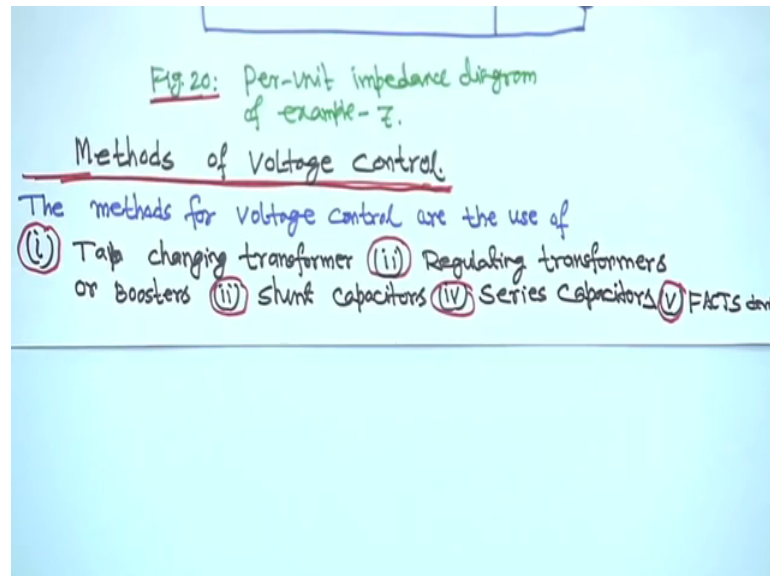 Fig. 20: Per-unit impedance diagram
of example-7.
Methods of Voltage Control.
The methods for voltage control are the use of
(i) Tap changing transformer (ii) Regulating transformers
or Boosters (ii) Shunt Capacitors (iv) Series Capacitors (v) FACTS